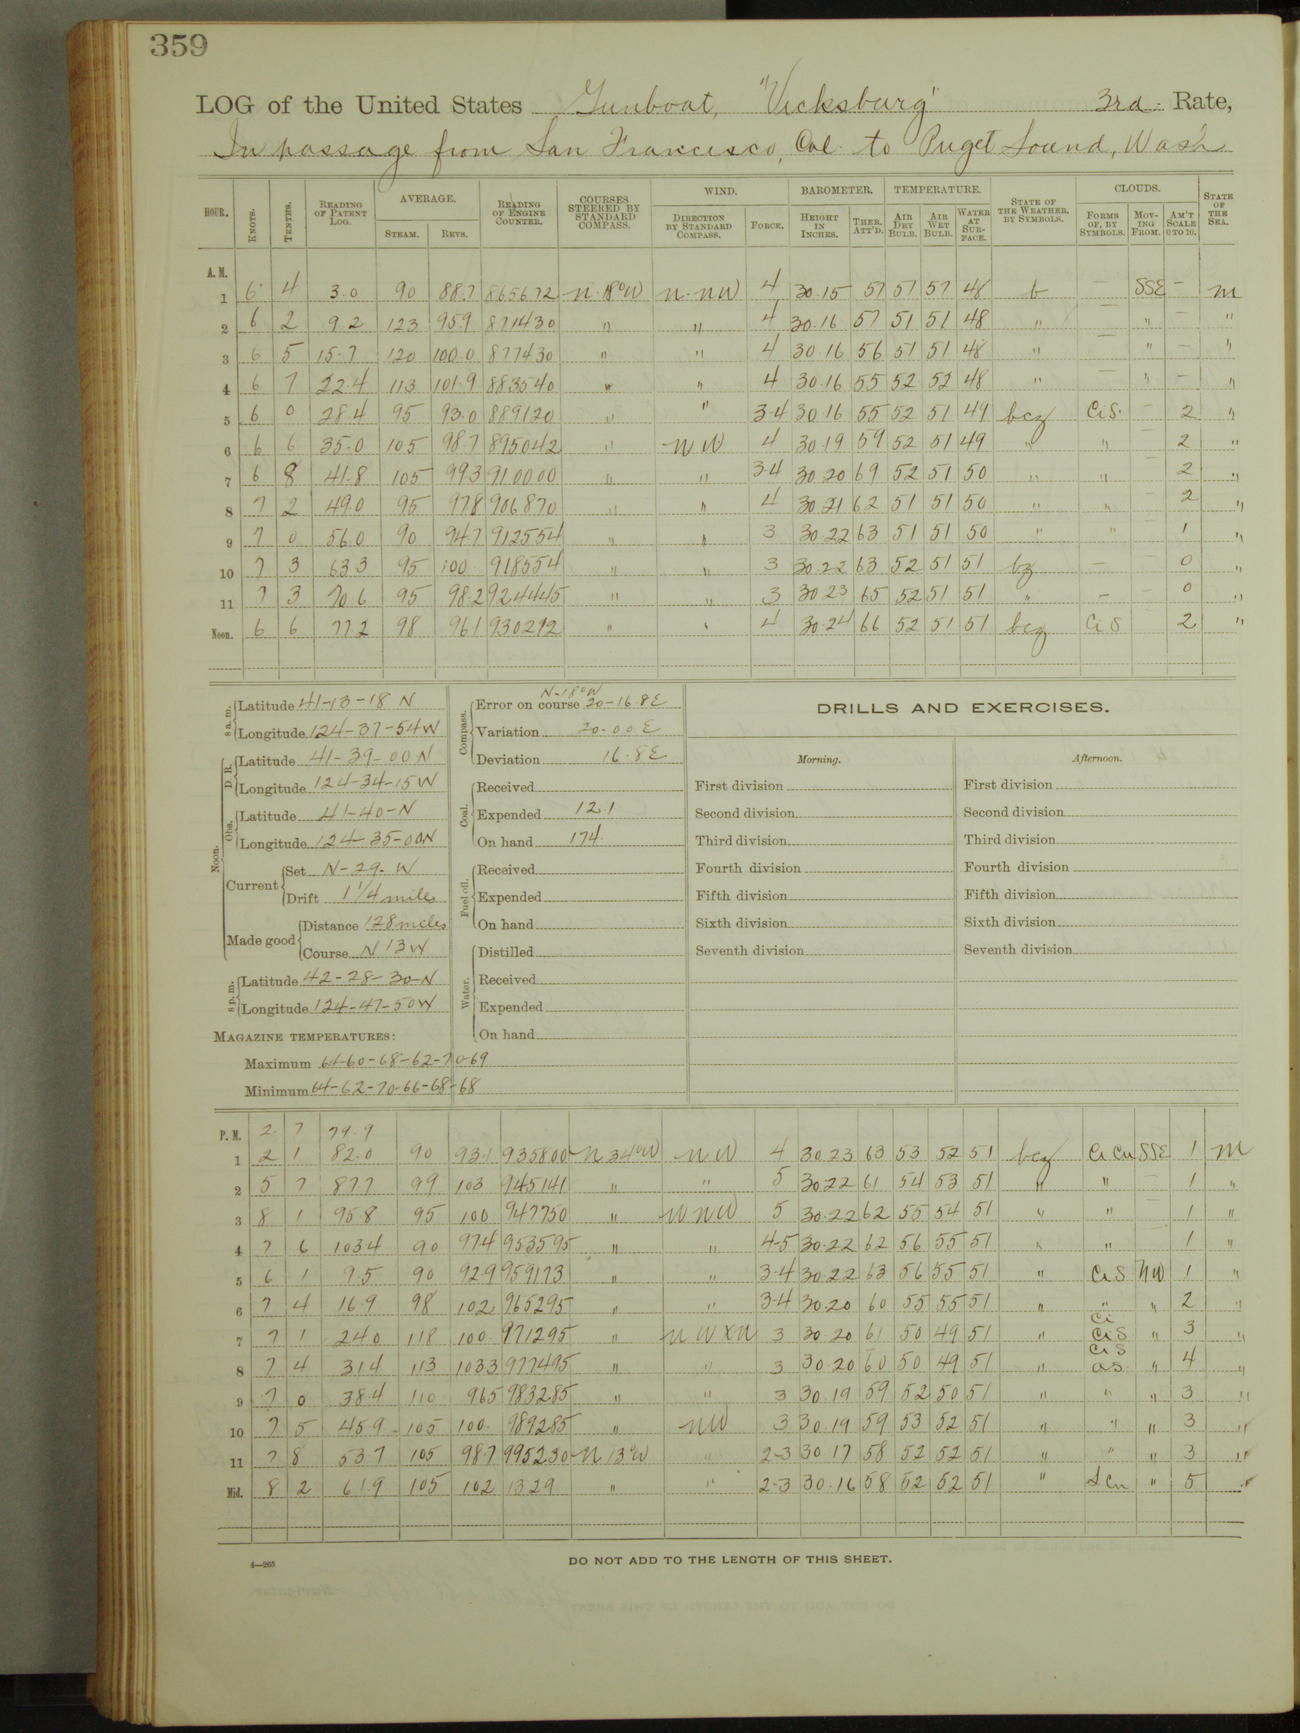 359
LOG of the United States Gunboat, "Vicksburg" 3rd Rate,
In passage from San Francisco, Cal. to Puget Sound, Wash
HOUR. KNOTS. TENTHS. READING OF PATENT LOG. AVERAGE. STEAM. REVS. READING OF ENGINE COUNTER. COURSES STEERED BY STANDARD COMPASS. WIND. DIRECTION BY STANDARD COMPASS. FORCE. BAROMETER. HEIGHT IN INCHES. THER. ATT'D. TEMPERATURE. AIR DRY BULB. AIR WET BULB. WATER AT SURFACE. STATE OF THE WEATHER, BY SYMBOLS. CLOUDS. FORMS OF, BY SYMBOLS. MOVING FROM. AM'T SCALE 0 TO 10. STATE OF THE SEA.
A. M.
1 6 4 3.0 90 88.7 865672 N 18° W N. NW 4 30.15 57 57 57 48 b — SSE — M
2 6 2 9.2 123 95.9 871430 " " 4 30.16 57 51 51 48 " — " — "
3 6 5 15.7 120 100.0 877430 " " 4 30.16 56 51 51 48 " — " — "
4 6 7 22.4 113 101.9 883540 " " 4 30.16 55 52 52 48 " — " — "
5 6 0 28.4 95 93.0 889120 " " 3-4 30.16 55 52 51 49 bcz Ci S. — 2 "
6 6 6 35.0 105 98.7 895042 " NW 4 30.19 59 52 51 49 " " — 2 "
7 6 8 41.8 105 99.3 910000 " " 3-4 30.20 69 52 51 50 " " — 2 "
8 7 2 49.0 95 97.8 906870 " " 4 30.21 62 51 51 50 " " — 2 "
9 7 0 56.0 90 94.7 912554 " " 3 30.22 63 51 51 50 " " — 1 "
10 7 3 63.3 95 100. 918554 " " 3 30.22 63 52 51 51 bz — — 0 "
11 7 3 70.6 95 98.2 924445 " " 3 30.23 65 52 51 51 " — — 0 "
Noon. 6 6 77.2 98 96.1 930212 " " 4 30.24 66 52 51 51 bcz Ci S 2 "
8 a.m. Latitude 41-13-18 N
Longitude 124-37-54 W
Noon. D. R. Latitude 41-39-00 N
Longitude 124-34-15 W
Obs. Latitude 41-40-N
Longitude 124-35-00 N
Current Set N-29-W
Drift 1 1/4 miles
Made good Distance 128 miles
Course N 13 W
8 p.m. Latitude 42-28-30-N
Longitude 124-47-50 W
MAGAZINE TEMPERATURES:
Maximum 64-60-68-62-70-69
Minimum 64-62-70-66-68-68
N-18° W
Compass. Error on course 20-16.8 E
Variation 20-00 E
Deviation 16.8 E
Coal. Received
Expended 12.1
On hand 174
Fuel oil. Received
Expended
On hand
Water. Distilled
Received
Expended
On hand
DRILLS AND EXERCISES.
Morning. Afternoon.
First division First division
Second division Second division
Third division Third division
Fourth division Fourth division
Fifth division Fifth division
Sixth division Sixth division
Seventh division Seventh division
P. M. 2. 7 79.9
1 2 1 82.0 90 93.1 935800 N 34° W NW 4 30.23 63 53 52 51 bcz Ci Cu SSE 1 M
2 5 7 87.7 99 103 945141 " " 5 30.22 61 54 53 51 " " — 1 "
3 8 1 95.8 95 100 947750 " WNW 5 30.22 62 55 54 51 " " — 1 "
4 7 6 103.4 90 97.4 953595 " " 4-5 30.22 62 56 55 51 " " 1 "
5 6 1 9.5 90 92.9 959173 " " 3-4 30.22 63 56 55 51 " Ci S NW 1 "
6 7 4 16.9 98 102. 965295 " " 3-4 30.20 60 55 55 51 " " " 2 "
7 7 1 24.0 118 100. 971295 " NW X N 3 30.20 61 50 49 51 " Ci Ci S " 3 "
8 7 4 31.4 113 103.3 977495 " " 3 30.20 60 50 49 51 " Ci S a s. " 4 "
9 7 0 38.4 110 96.5 983285 " " 3 30.19 59 52 50 51 " " " 3 "
10 7 5 45.9 105 100. 989285 " NW 3 30.19 59 53 52 51 " " " 3 "
11 7 8 53.7 105 98.7 995230 N 13° W " 2-3 30.17 58 52 52 51 " " " 3 "
Mid. 8 2 61.9 105 102 1329 " " 2-3 30.16 58 52 52 51 " S Cu " 5 "
4—265
DO NOT ADD TO THE LENGTH OF THIS SHEET.